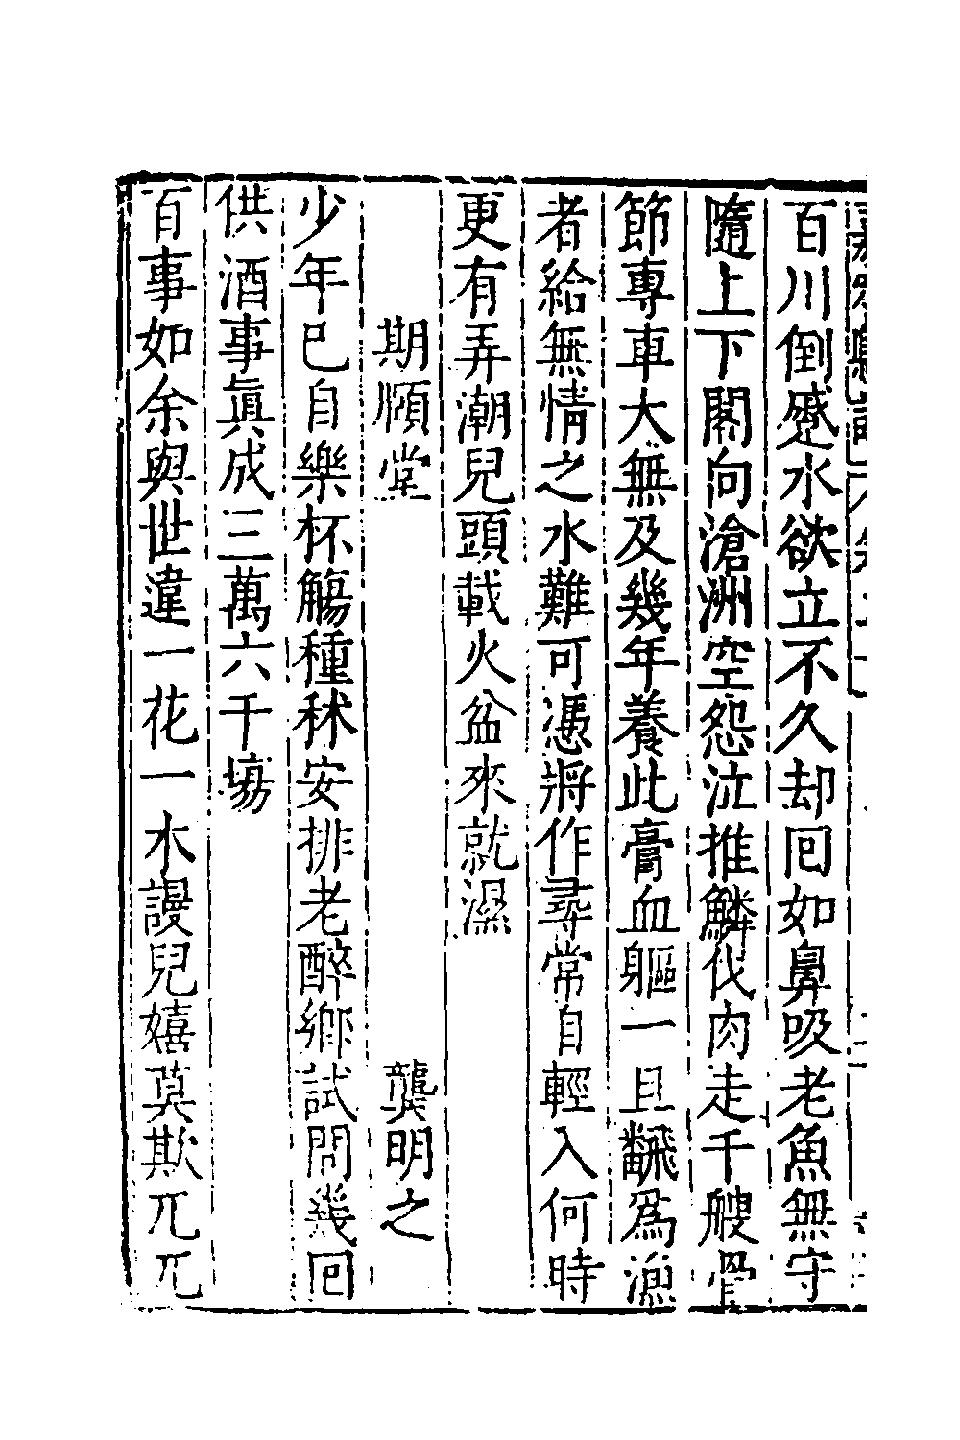 百川倒蹙水欲立不久却囘如鼻吸老魚無守
隨上下閣向滄洲空怨泣推鱗伐肉走千艘骨
節專車大無及幾年養此膏血軀一旦翻爲漁
者給無情之水難可憑將作尋常自輕入何時
更有弄潮兒頭載火盆來就濕
期順堂 龔明之
少年已自樂杯觴種秫安排老醉鄉試問幾囘
供酒事眞成三萬六千塲
百事如余與世違一花一木謾兒嬉莫欺兀兀